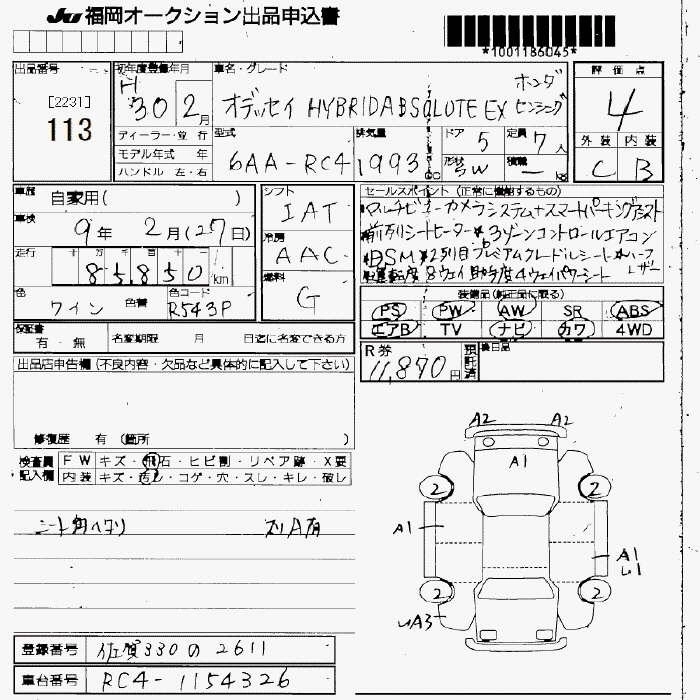 JU 福岡オークション出品申込書
*1001186045*
出品番号
[2231]
113
初年度登録年月
H30 2月
車名・グレード
ホンダ
オデッセイ HYBRIDABSOLUTE EX センシング
評価点
4
外装 内装
C B
ディーラー・並行
モデル年式 年
ハンドル 左・右
型式
6AA-RC4
排気量
1993cc
ドア
5
形状
SW
定員
7人
積載
- kg
車歴
自家用( )
車検
9年 2月(27日)
走行
85,850km
色
ワイン 色替
色コード
R543P
シフト
IAT
冷房
AAC
燃料
G
セールスポイント(正常に機能するもの)
*マルチビューカメラシステム+スマートパーキングアシスト
*前列シートヒーター *3ゾーンコントロールエアコン
*BSM *2列目プレミアムクレードルシート *ハーフレザー
*運転席8ウェイ助手席4ウェイパワーシート
装備品(純正品に限る)
PS PW AW SR ABS
エアB TV ナビ カワ 4WD
保証書
有・無
名変期限 月 日迄に名変できる方
R券
11,870円
預託済
後日品
出品店申告欄(不良内容・欠品など具体的に記入して下さい)
修復歴 有(箇所
検査員記入欄
FW キズ・飛石・ヒビ割・リペア跡・X要
内装 キズ・汚レ・コゲ・穴・スレ・キレ・破レ
シート角ヘタリ
A2 A2
A1
2 2
A1
A1
2 2
A3
登録番号 佐賀330の2611
車台番号 RC4-1154326